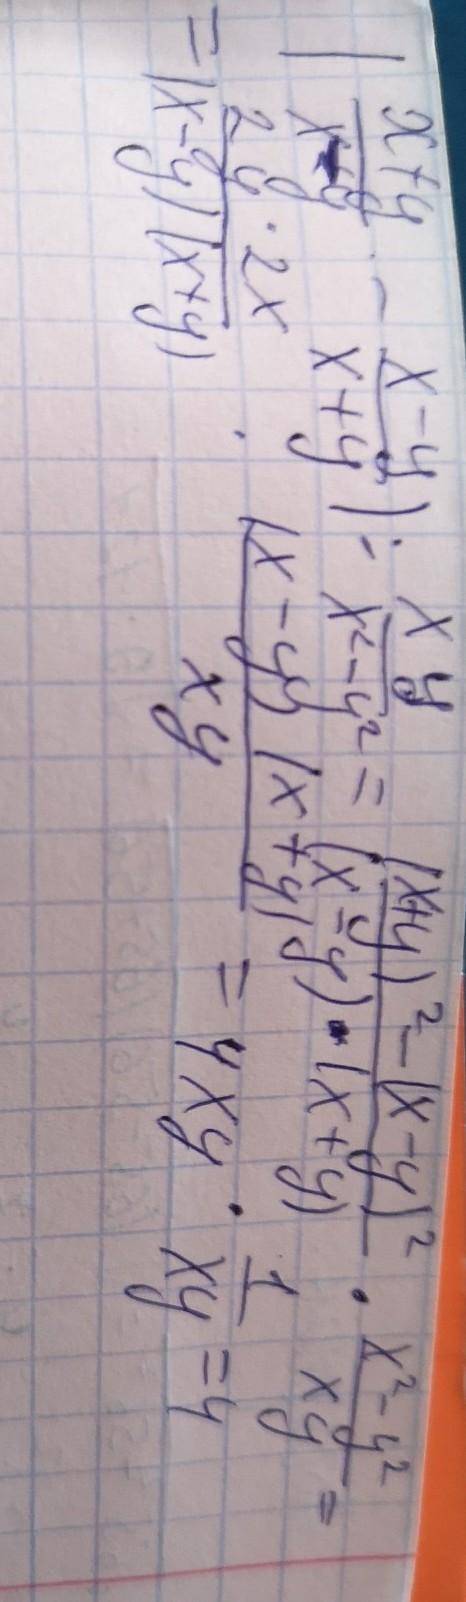 (x+y/x-y - x-y/x+y) : xy/x²-y² = (x+y)²-(x-y)²/(x-y)·(x+y) · x²-y²/xy =
= 2y·2x/(x-y)(x+y) · (x-y)(x+y)/xy = 4xy · 1/xy = 4